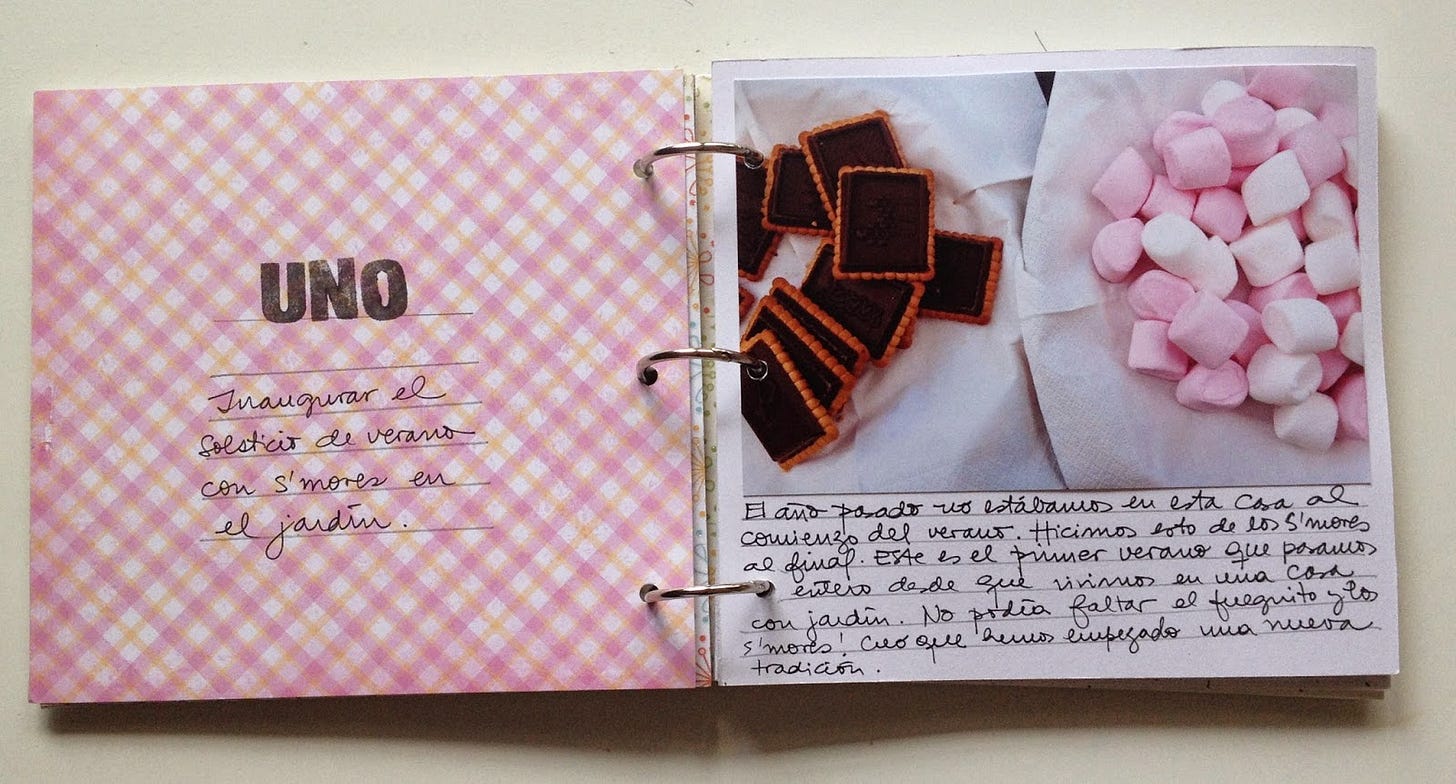 UNO
Inaugurar el
Solsticio de verano
con s'mores en
el jardín.
El año pasado no estábamos en esta casa al
comienzo del verano. Hicimos esto de los S'mores
al final. Este es el primer verano que pasamos
entero desde que vivimos en una casa
con jardín. No podía faltar el fueguito y los
s'mores! Creo que hemos empezado una nueva
tradición.